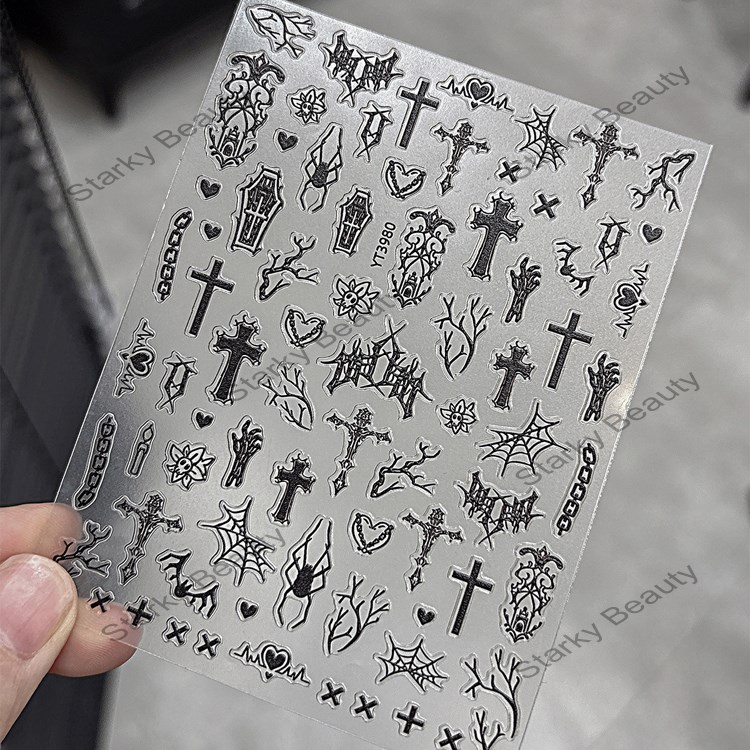 Starky Beauty
Starky Beauty
YT3980
Starky Beauty
Starky Beauty
Starky Beauty
Starky Beauty